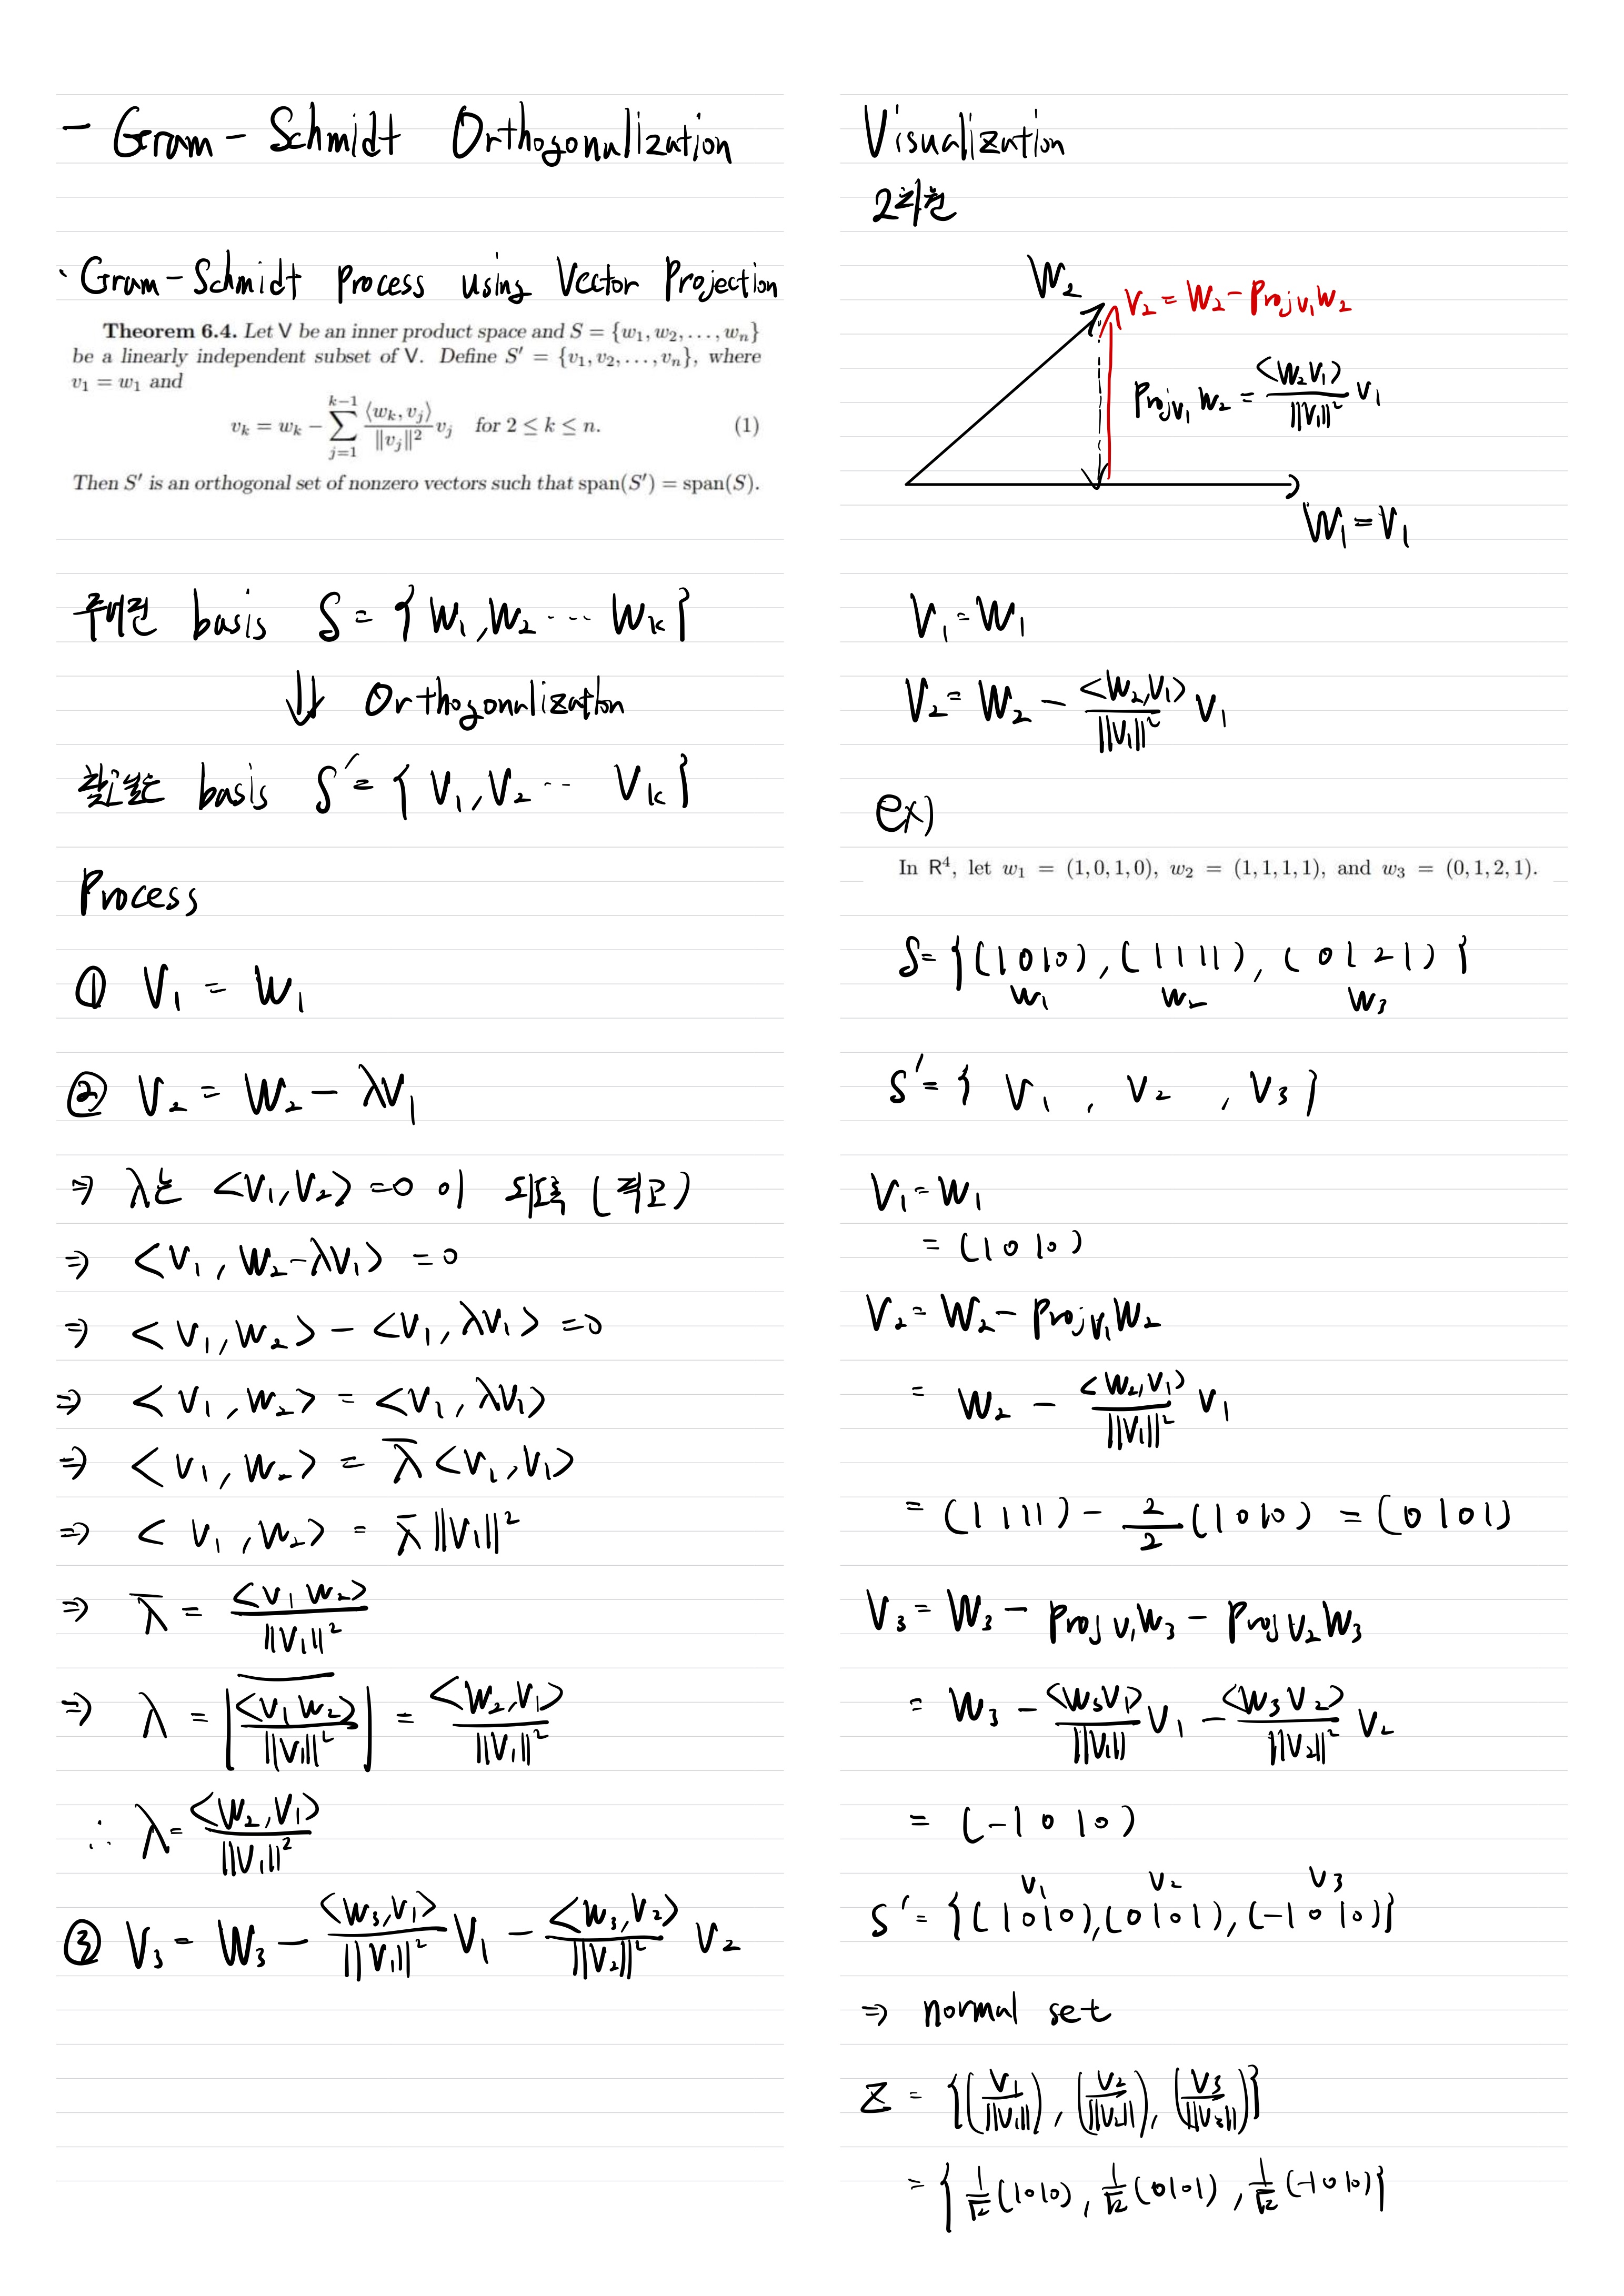 - Gram - Schmidt Orthogonalization
· Gram-Schmidt Process using Vector Projection
Theorem 6.4. Let V be an inner product space and S = {w₁, w₂, . . . , wₙ}
be a linearly independent subset of V. Define S′ = {v₁, v₂, . . . , vₙ}, where
v₁ = w₁ and
vₖ = wₖ − ∑_{j=1}^{k−1} ⟨wₖ, vⱼ⟩/‖vⱼ‖² vⱼ for 2 ≤ k ≤ n. (1)
Then S′ is an orthogonal set of nonzero vectors such that span(S′) = span(S).
주어진 basis S = {W₁, W₂ ... Wₖ}
⇓ Orthogonalization
찾고싶은 basis S′ = {V₁, V₂ ... Vₖ}
Process
① V₁ = W₁
② V₂ = W₂ - λV₁
⇒ λ는 <V₁, V₂> = 0 이 되도록 (직교)
⇒ <V₁, W₂-λV₁> = 0
⇒ <V₁, W₂> - <V₁, λV₁> = 0
⇒ <V₁, W₂> = <V₁, λV₁>
⇒ <V₁, W₂> = λ̅ <V₁, V₁>
⇒ <V₁, W₂> = λ̅ ||V₁||²
⇒ λ̅ = <V₁ W₂>/||V₁||²
⇒ λ = |<V₁ W₂>‾/||V₁||²| = <W₂, V₁>/||V₁||²
∴ λ = <W₂, V₁>/||V₁||²
③ V₃ = W₃ - <W₃, V₁>/||V₁||² V₁ - <W₃, V₂>/||V₂||² V₂
Visualization
2차원
W₂
V₂ = W₂ - Proj_V₁ W₂
Proj_V₁ W₂ = <W₂ V₁>/||V₁||² V₁
W₁ = V₁
V₁ = W₁
V₂ = W₂ - <W₂, V₁>/||V₁||² V₁
ex)
In R⁴, let w₁ = (1, 0, 1, 0), w₂ = (1, 1, 1, 1), and w₃ = (0, 1, 2, 1).
S = {(1 0 1 0), (1 1 1 1), (0 1 2 1)}
W₁ W₂ W₃
S′ = { V₁ , V₂ , V₃ }
V₁ = W₁
= (1 0 1 0)
V₂ = W₂ - Proj_V₁ W₂
= W₂ - <W₂, V₁>/||V₁||² V₁
= (1 1 1 1) - 2/2 (1 0 1 0) = (0 1 0 1)
V₃ = W₃ - Proj_V₁ W₃ - Proj_V₂ W₃
= W₃ - <W₃ V₁>/||V₁|| V₁ - <W₃ V₂>/||V₂||² V₂
= (-1 0 1 0)
V₁ V₂ V₃
S′ = {(1 0 1 0), (0 1 0 1), (-1 0 1 0)}
⇒ normal set
Z = {(V₁/||V₁||), (V₂/||V₂||), (V₃/||V₃||)}
= {1/√2 (1 0 1 0), 1/√2 (0 1 0 1), 1/√2 (-1 0 1 0)}